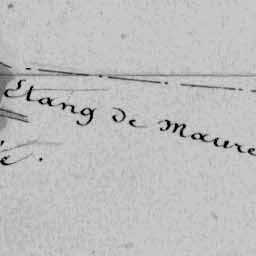 Etang de Maure
é.